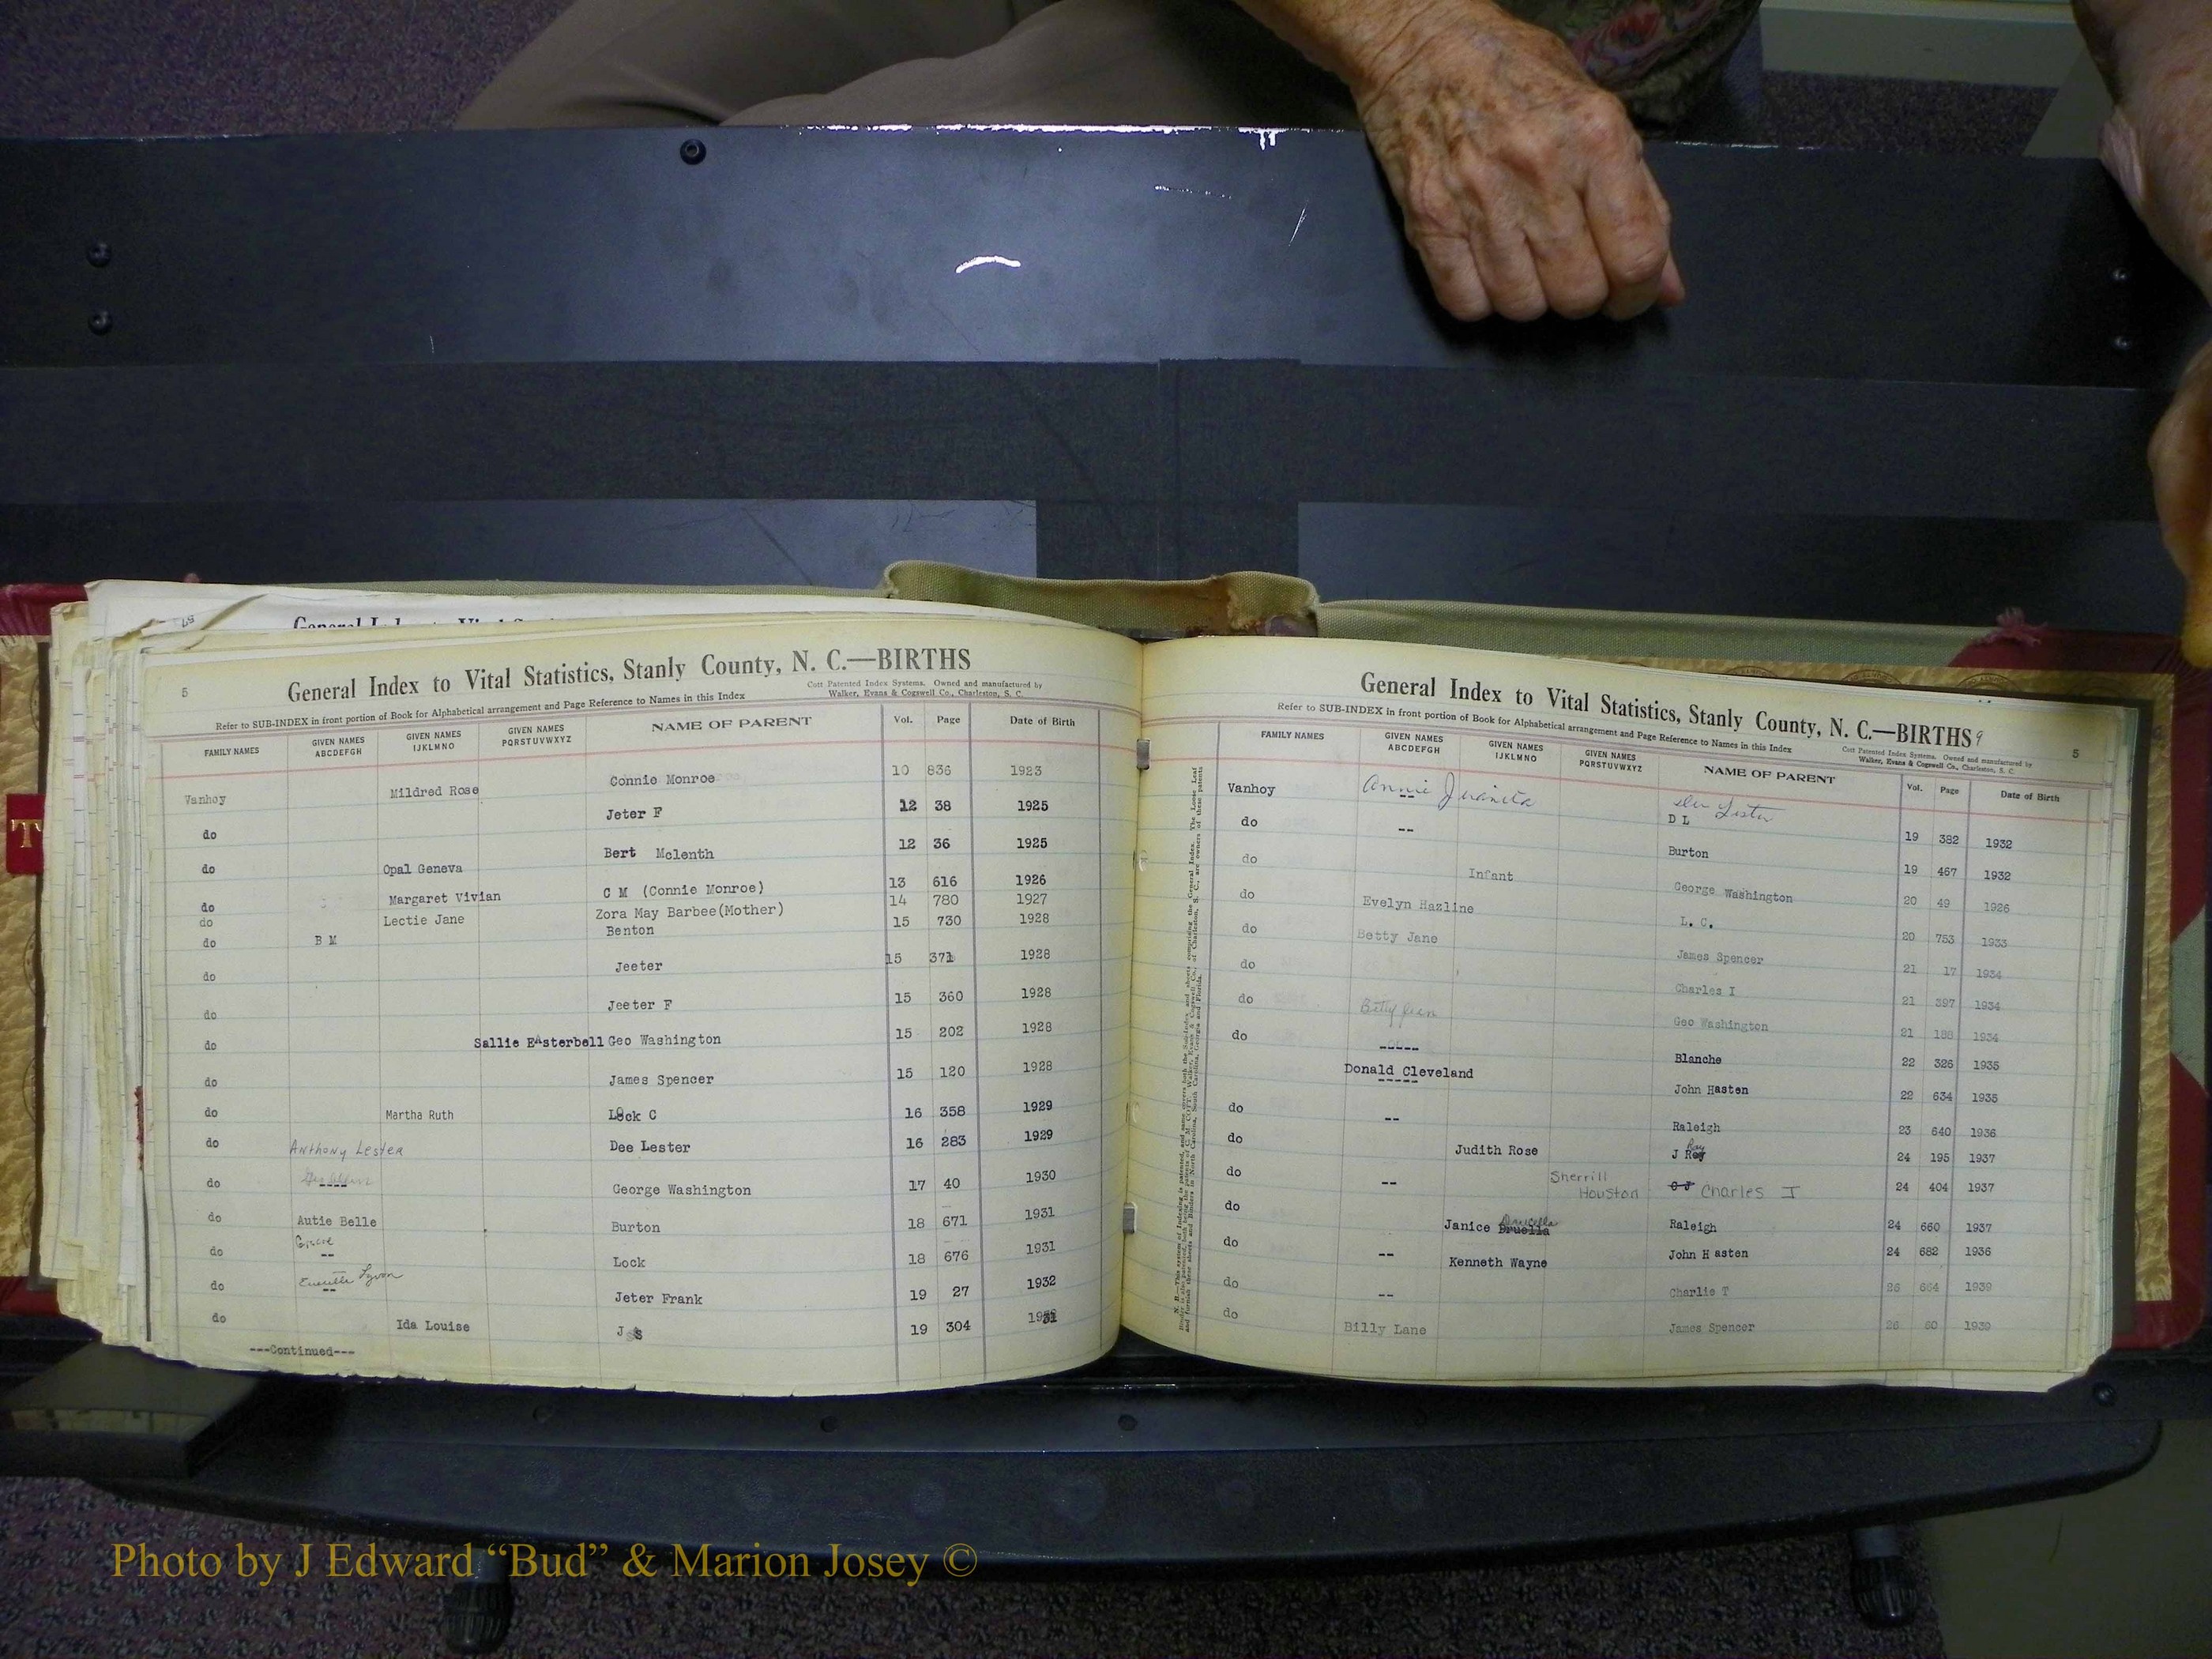 5
General Index to Vital Statistics, Stanly County, N. C.—BIRTHS
Refer to SUB-INDEX in front portion of Book for Alphabetical arrangement and Page Reference to Names in this Index
Cott Patented Index Systems. Owned and manufactured by
Walker, Evans & Cogswell Co., Charleston, S. C.
FAMILY NAMES GIVEN NAMES ABCDEFGH GIVEN NAMES IJKLMNO GIVEN NAMES PQRSTUVWXYZ NAME OF PARENT Vol. Page Date of Birth
Vanhoy Mildred Rose Connie Monroe 10 836 1923
do Jeter F 12 38 1925
do Opal Geneva Bert Mclenth 12 36 1925
do Margaret Vivian C M (Connie Monroe) 13 616 1926
do Lectie Jane Zora May Barbee(Mother) 14 780 1927
do B M Benton 15 730 1928
do Jeeter 15 371 1928
do Jeeter F 15 360 1928
do Sallie Easterbell Geo Washington 15 202 1928
do James Spencer 15 120 1928
do Martha Ruth Lock C 16 358 1929
do Anthony Lester Dee Lester 16 283 1929
do ---- George Washington 17 40 1930
do Autie Belle Burton 18 671 1931
do -- Lock 18 676 1931
do -- Jeter Frank 19 27 1932
do Ida Louise J S 19 304
---Continued---
General Index to Vital Statistics, Stanly County, N. C.—BIRTHS 9
Refer to SUB-INDEX in front portion of Book for Alphabetical arrangement and Page Reference to Names in this Index
Cott Patented Index Systems. Owned and manufactured by
Walker, Evans & Cogswell Co., Charleston, S. C.
5
FAMILY NAMES GIVEN NAMES ABCDEFGH GIVEN NAMES IJKLMNO GIVEN NAMES PQRSTUVWXYZ NAME OF PARENT Vol. Page Date of Birth
Vanhoy Annie Juanita -- Lester D L 19 382 1932
do -- Burton 19 467 1932
do Infant George Washington 20 49 1926
do Evelyn Hazline L. C. 20 753 1933
do Betty Jane James Spencer 21 17 1934
do Charles I 21 397 1934
do Betty Jean Geo Washington 21 188 1934
do ----- Blanche 22 326 1935
Donald Cleveland ----- John Hasten 22 634 1935
do -- Raleigh 23 640 1936
do Judith Rose J Roy Ray 24 195 1937
do -- Sherrill Houston C J Charles I 24 404 1937
do Janice Druella Raleigh 24 660 1937
do -- Kenneth Wayne John Hasten 24 682 1936
do -- Charlie T 26 664 1939
do Billy Lane James Spencer 26 60 1939
Photo by J Edward “Bud” & Marion Josey ©